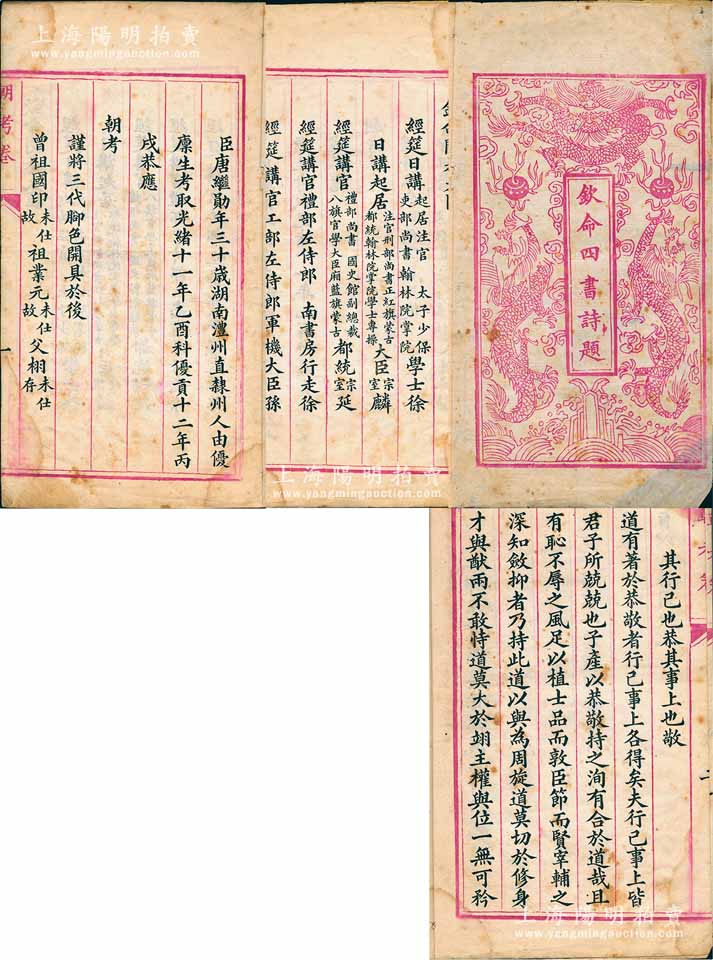 欽命四書詩題
經筵日講起居注官 太子少保學士徐
吏部尚書翰林院掌院
日講起居注官刑部尚書正紅旗蒙古大臣宗室麟
都統翰林院掌院學士專操
經筵講官禮部尚書 國史館副總裁都統宗室延
八旗官學大臣廂藍旗蒙古
經筵講官禮部左侍郎 南書房行走徐
經筵講官工部左侍郎軍機大臣孫
臣唐繼勛年三十歲湖南澧州直隸州人由優
廩生考取光緒十一年乙酉科優貢十二年丙
戌恭應
朝考
謹將三代腳色開具於後
曾祖國印未仕故 祖業元未仕故 父栩未仕存
朝考卷
一
其行己也恭其事上也敬
道有著於恭敬者行己事上各得矣夫行己事上皆
君子所兢兢也子產以恭敬持之洵有合於道哉且
有恥不辱之風足以植士品而敦臣節而賢宰輔之
深知斂抑者乃持此道以與為周旋道莫切於修身
才與猷兩不敢恃道莫大於翊主權與位一無可矜
上海陽明拍賣
www.yangmingauction.com
上海陽明拍賣
www.yangmingauction.com
上海陽明拍賣
www.yangmingauction.com